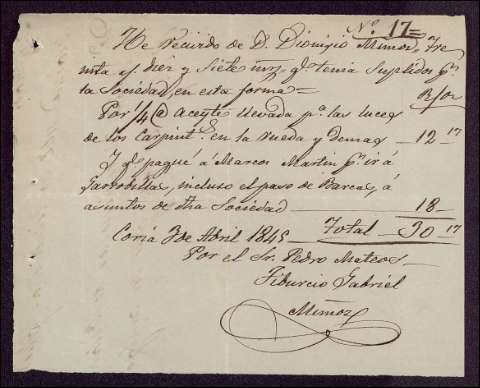 Nº 17=
He recivido de D. Dionisio Muñoz, Tre
inta y diez y siete mrs q.e tenia suplidos p.r
la Sociedad, en esta forma=
Por 1/4 @ aceyte llevada p.a las luces
de los Carpint.s en la rueda y demas — 12 17
Y q.e pagué á Marcos Martin p.r ir á
Garrobillas, incluso el paso de Barcas, á
asuntos de dha Sociedad — 18 —
Coria 3 de Abril 1845 — Total — 30 17
Por el Sr. Pedro Mateos —
Tiburcio Gabriel
Muñoz